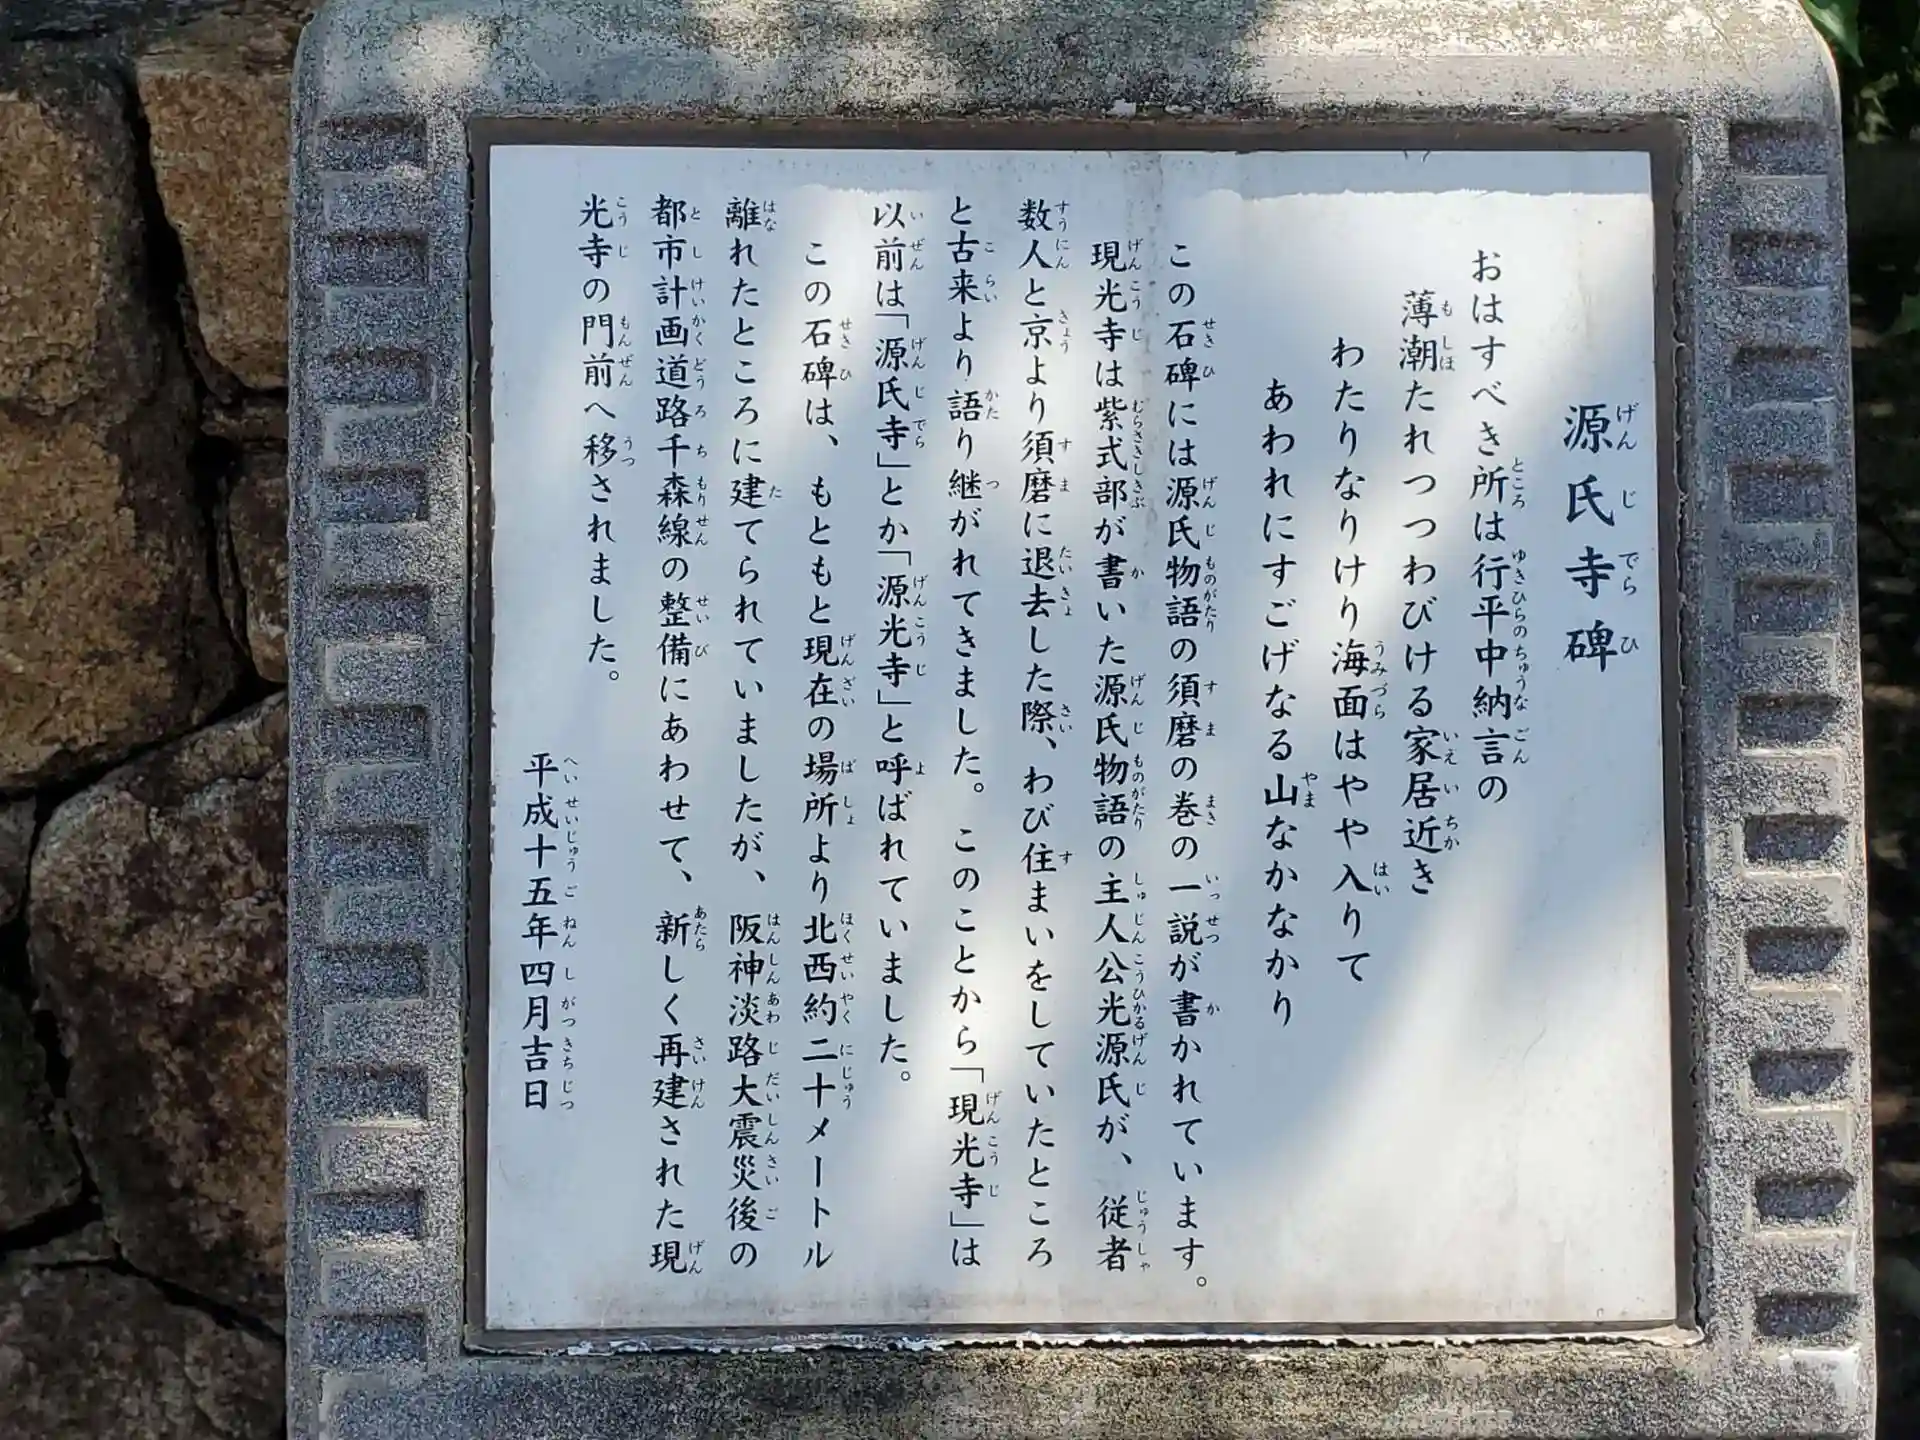 源氏寺碑
おはすべき所は行平中納言の
薄潮たれつつわびける家居近き
わたりなりけり海面はやや入りて
あわれにすごげなる山なかなかり
この石碑には源氏物語の須磨の巻の一説が書かれています。
現光寺は紫式部が書いた源氏物語の主人公光源氏が、従者
数人と京より須磨に退去した際、わび住まいをしていたところ
と古来より語り継がれてきました。このことから「現光寺」は
以前は「源氏寺」とか「源光寺」と呼ばれていました。
この石碑は、もともと現在の場所より北西約二十メートル
離れたところに建てられていましたが、阪神淡路大震災後の
都市計画道路千森線の整備にあわせて、新しく再建された現
光寺の門前へ移されました。
平成十五年四月吉日